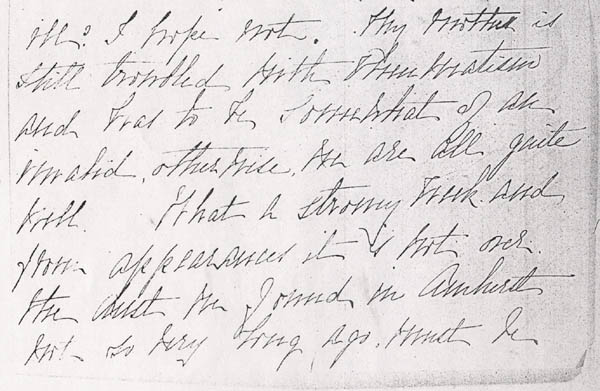 ill? I hope not. My mother is
still troubled with Rheumatism
and has to be somewhat of an
invalid, otherwise, we are all quite
well. What a stormy week and
from appearances it is not over.
the dust we found in Amherst
not so very long ago. must be